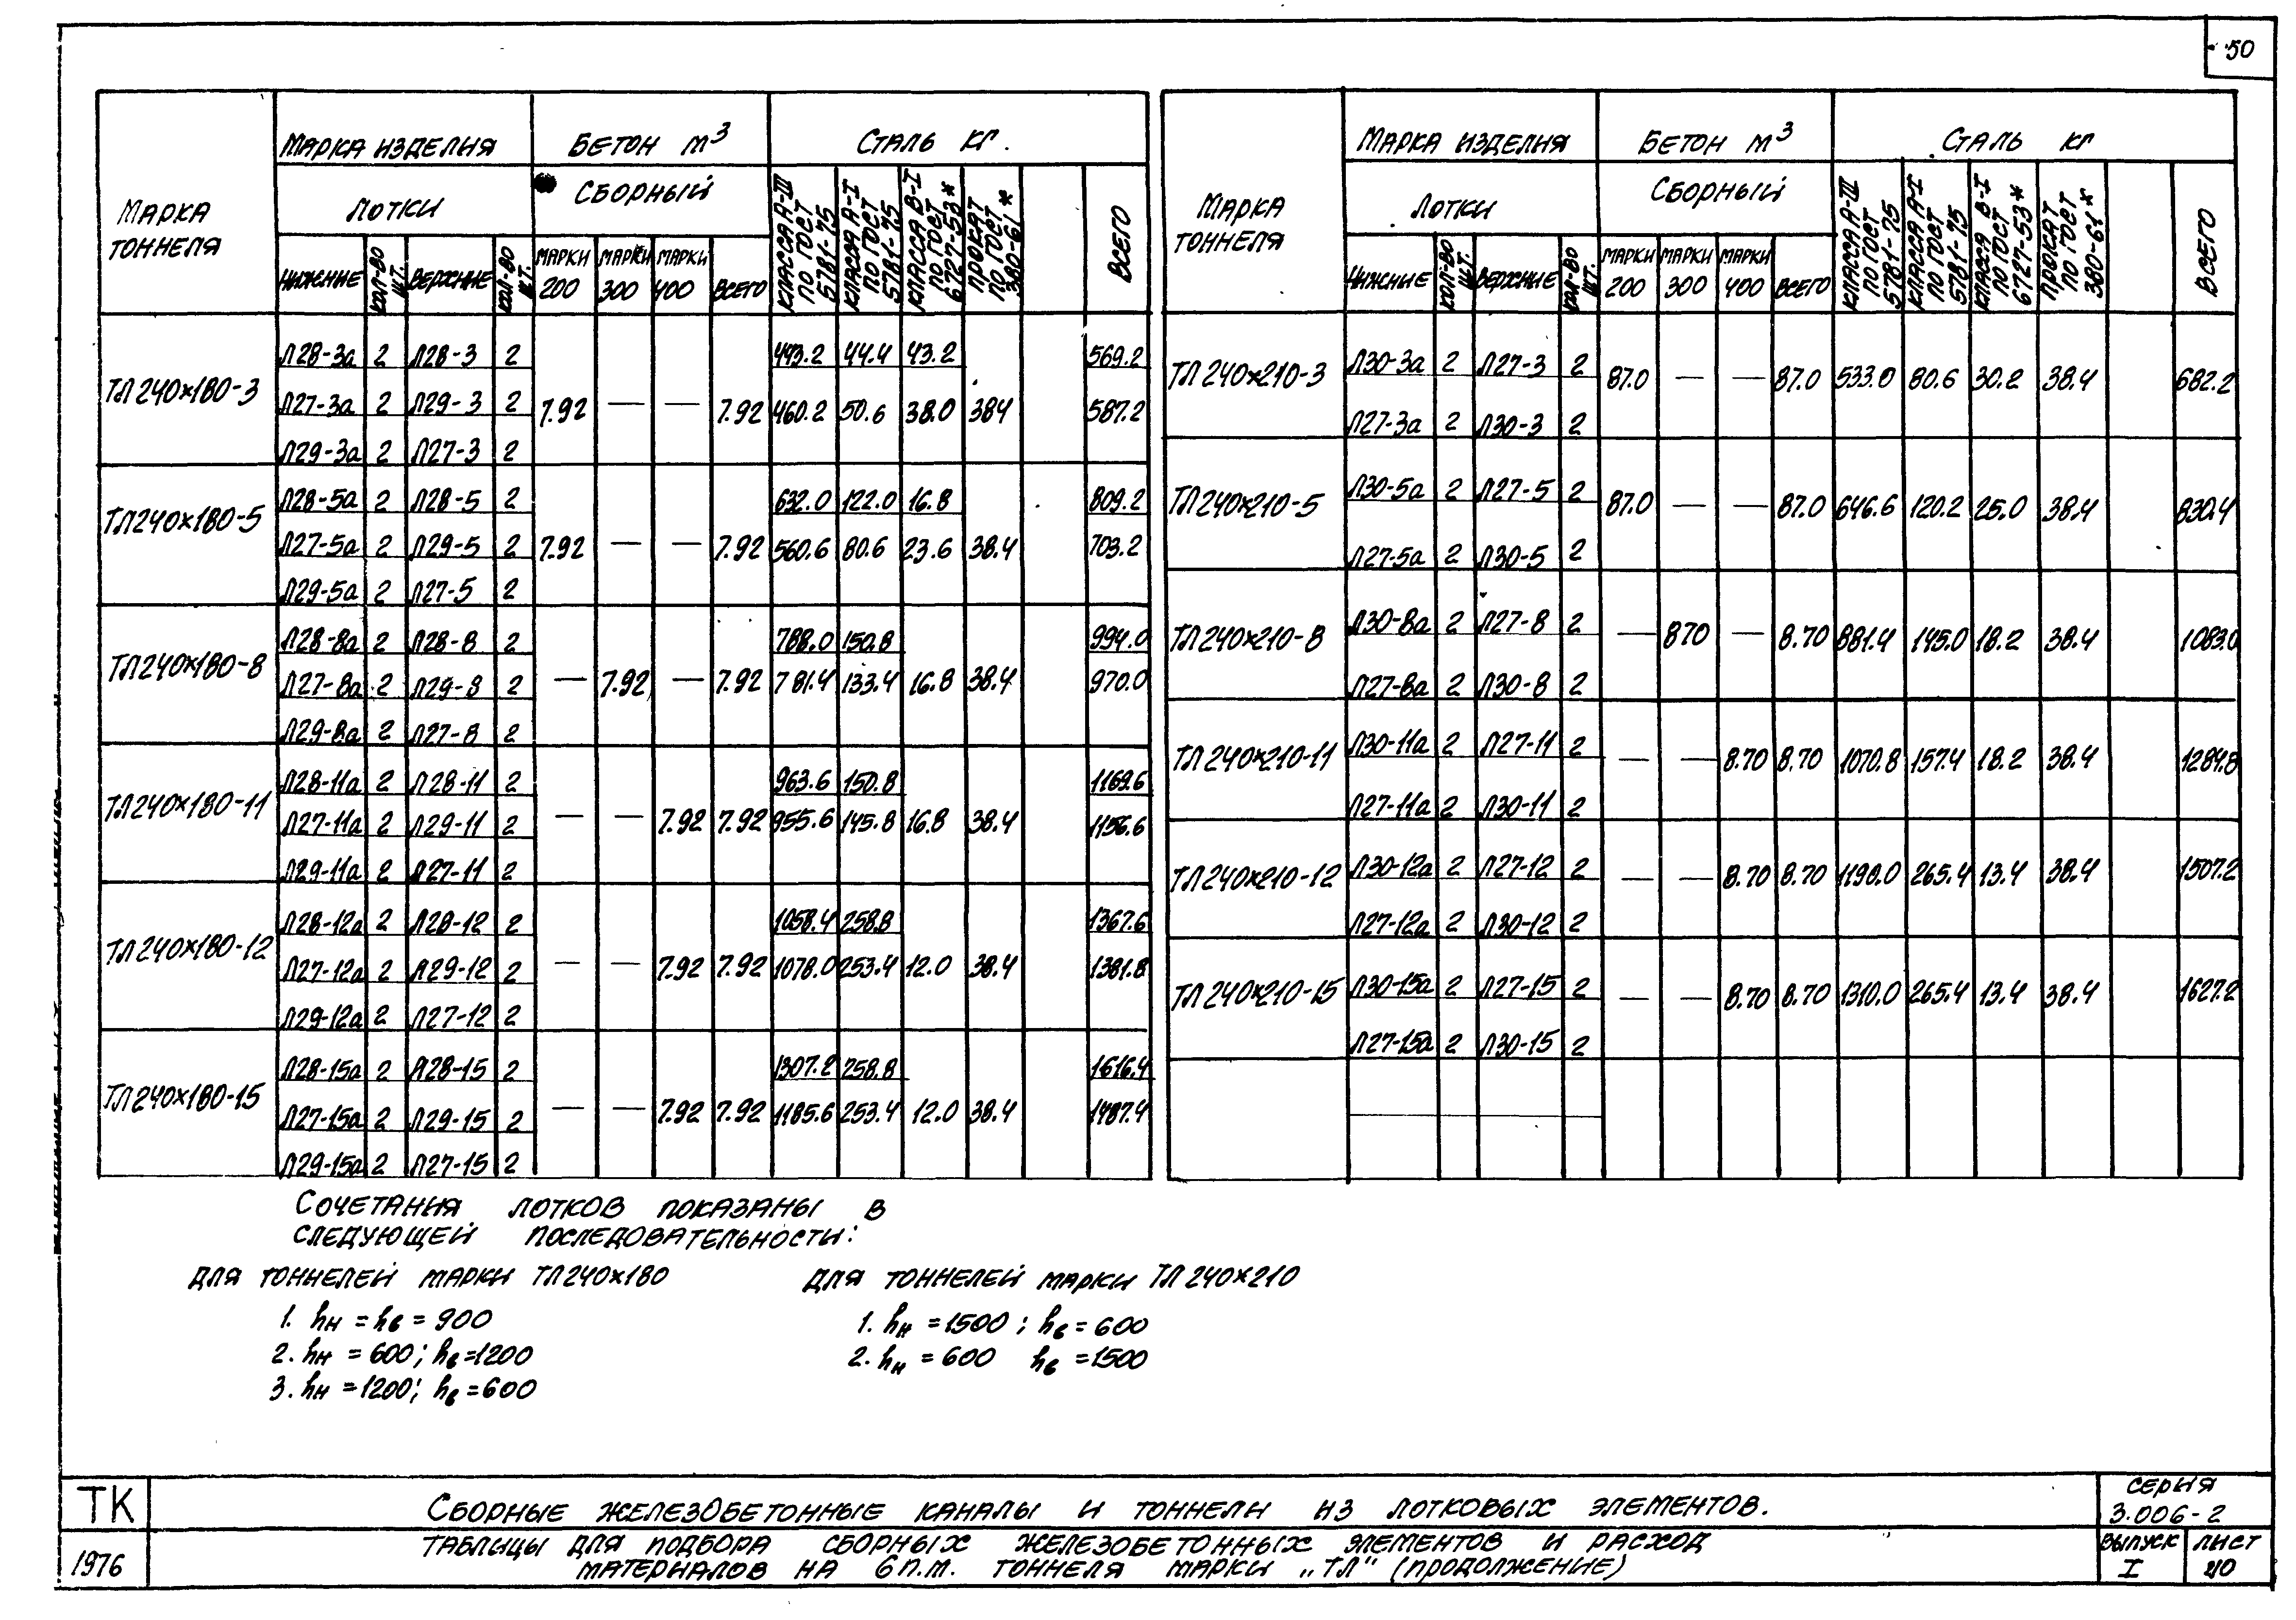 50
МАРКА ТОННЕЛЯ | МАРКА ИЗДЕЛИЯ | БЕТОН м³ | СТАЛЬ КГ.
ЛОТКИ | СБОРНЫЙ | КЛАССА А-III ПО ГОСТ 5781-75 | КЛАССА А-I ПО ГОСТ 5781-75 | КЛАССА В-I ПО ГОСТ 6727-53* | ПРОКАТ ПО ГОСТ 380-61* | ВСЕГО
НИЖНИЕ | КОЛ-ВО ШТ. | ВЕРХНИЕ | КОЛ-ВО ШТ. | МАРКИ 200 | МАРКИ 300 | МАРКИ 400 | ВСЕГО
ТЛ240×180-3
Л28-3а 2 Л28-3 2 443.2 44.4 43.2 569.2
Л27-3а 2 Л29-3 2 7.92 — — 7.92 460.2 50.6 38.0 384 587.2
Л29-3а 2 Л27-3 2
ТЛ240×180-5
Л28-5а 2 Л28-5 2 632.0 122.0 16.8 809.2
Л27-5а 2 Л29-5 2 7.92 — — 7.92 560.6 80.6 23.6 38.4 703.2
Л29-5а 2 Л27-5 2
ТЛ240×180-8
Л28-8а 2 Л28-8 2 788.0 150.8 994.0
Л27-8а 2 Л29-8 2 — 7.92 — 7.92 781.4 133.4 16.8 38.4 970.0
Л29-8а 2 Л27-8 2
ТЛ240×180-11
Л28-11а 2 Л28-11 2 963.6 150.8 1169.6
Л27-11а 2 Л29-11 2 — — 7.92 7.92 955.6 145.8 16.8 38.4 1156.6
Л29-11а 2 Л27-11 2
ТЛ240×180-12
Л28-12а 2 Л28-12 2 1058.4 258.8 1367.6
Л27-12а 2 Л29-12 2 — — 7.92 7.92 1078.0 253.4 12.0 38.4 1381.8
Л29-12а 2 Л27-12 2
ТЛ240×180-15
Л28-15а 2 Л28-15 2 1307.2 258.8 1616.4
Л27-15а 2 Л29-15 2 — — 7.92 7.92 1185.6 253.4 12.0 38.4 1487.4
Л29-15а 2 Л27-15 2
МАРКА ТОННЕЛЯ | МАРКА ИЗДЕЛИЯ | БЕТОН м³ | СТАЛЬ КГ
ЛОТКИ | СБОРНЫЙ | КЛАССА А-III ПО ГОСТ 5781-75 | КЛАССА А-I ПО ГОСТ 5781-75 | КЛАССА В-I ПО ГОСТ 6727-53* | ПРОКАТ ПО ГОСТ 380-61* | ВСЕГО
НИЖНИЕ | КОЛ-ВО ШТ. | ВЕРХНИЕ | КОЛ-ВО ШТ. | МАРКИ 200 | МАРКИ 300 | МАРКИ 400 | ВСЕГО
ТЛ240×210-3
Л30-3а 2 Л27-3 2 87.0 — — 87.0 533.0 80.6 30.2 38.4 682.2
Л27-3а 2 Л30-3 2
ТЛ240×210-5
Л30-5а 2 Л27-5 2 87.0 — — 87.0 646.6 120.2 25.0 38.4 830.4
Л27-5а 2 Л30-5 2
ТЛ240×210-8
Л30-8а 2 Л27-8 2 — 870 — 8.70 881.4 145.0 18.2 38.4 1083.0
Л27-8а 2 Л30-8 2
ТЛ240×210-11
Л30-11а 2 Л27-11 2 — — 8.70 8.70 1070.8 157.4 18.2 38.4 1284.8
Л27-11а 2 Л30-11 2
ТЛ240×210-12
Л30-12а 2 Л27-12 2 — — 8.70 8.70 1190.0 265.4 13.4 38.4 1507.2
Л27-12а 2 Л30-12 2
ТЛ240×210-15
Л30-15а 2 Л27-15 2 — — 8.70 8.70 1310.0 265.4 13.4 38.4 1627.2
Л27-15а 2 Л30-15 2
СОЧЕТАНИЯ ЛОТКОВ ПОКАЗАНЫ В
СЛЕДУЮЩЕЙ ПОСЛЕДОВАТЕЛЬНОСТИ:
ДЛЯ ТОННЕЛЕЙ МАРКИ ТЛ240×180
1. hн = hв = 900
2. hн = 600; hв=1200
3. hн =1200; hв=600
ДЛЯ ТОННЕЛЕЙ МАРКИ ТЛ240×210
1. hн =1500; hв=600
2. hн =600 hв =1500
ТК
1976
СБОРНЫЕ ЖЕЛЕЗОБЕТОННЫЕ КАНАЛЫ И ТОННЕЛИ ИЗ ЛОТКОВЫХ ЭЛЕМЕНТОВ.
ТАБЛИЦЫ ДЛЯ ПОДБОРА СБОРНЫХ ЖЕЛЕЗОБЕТОННЫХ ЭЛЕМЕНТОВ И РАСХОД
МАТЕРИАЛОВ НА 6П.М. ТОННЕЛЯ МАРКИ „ТЛ" (ПРОДОЛЖЕНИЕ)
СЕРИЯ
3.006-2
ВЫПУСК ЛИСТ
I 40